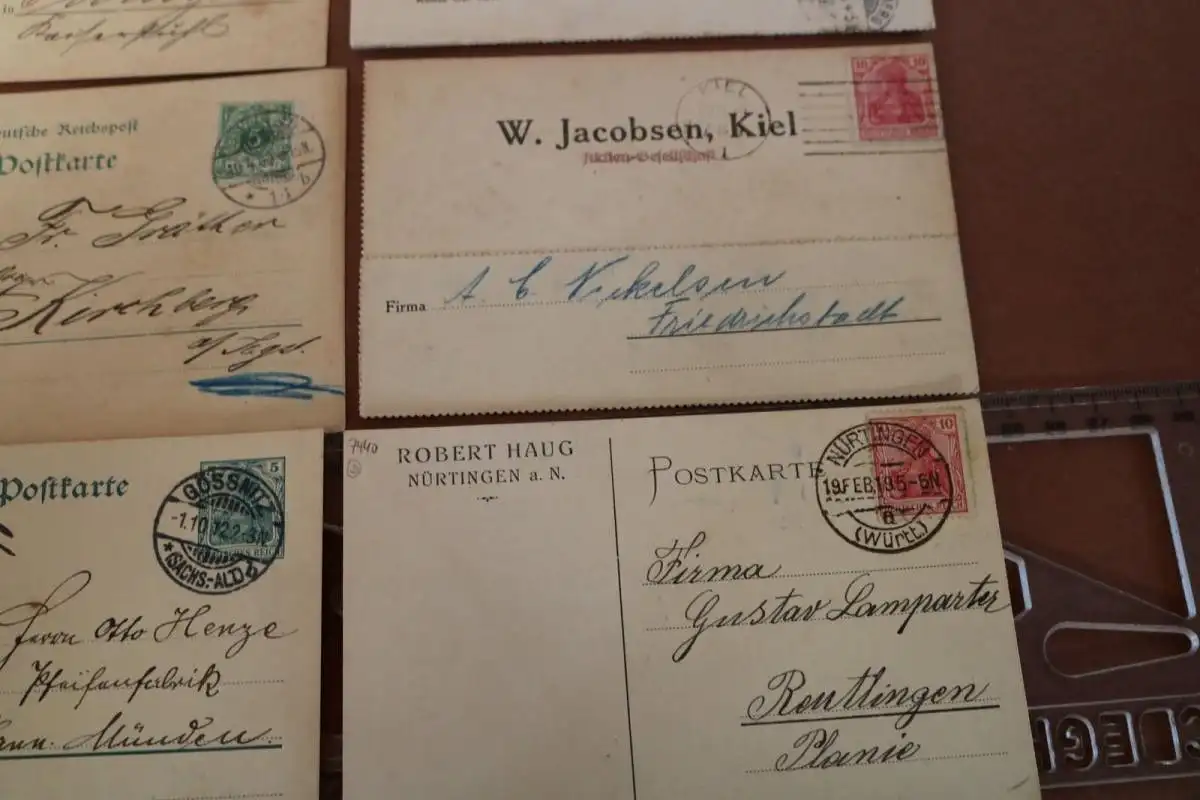 in
Kaiserstuhl
Deutsche Reichspost
Postkarte
Fr. Gräther
Kirchberg
a/Jgst.
KIEL
10 10
W. Jacobsen, Kiel
Aktien-Gesellschaft
Firma A C Nickelsen
Friedrichstadt
Postkarte
5
GÖSSNITZ
-1.10.12.2-3N.
(SACHS.-ALT.)
Herrn Otto Henze
Pfeifenfabrik
Hann. Münden.
7440
ROBERT HAUG
NÜRTINGEN a. N.
POSTKARTE
10
NÜRTINGEN
19.FEB.19.5-6N.
a
(Württ.)
Firma
Gustav Lamparter
Reutlingen
Planie